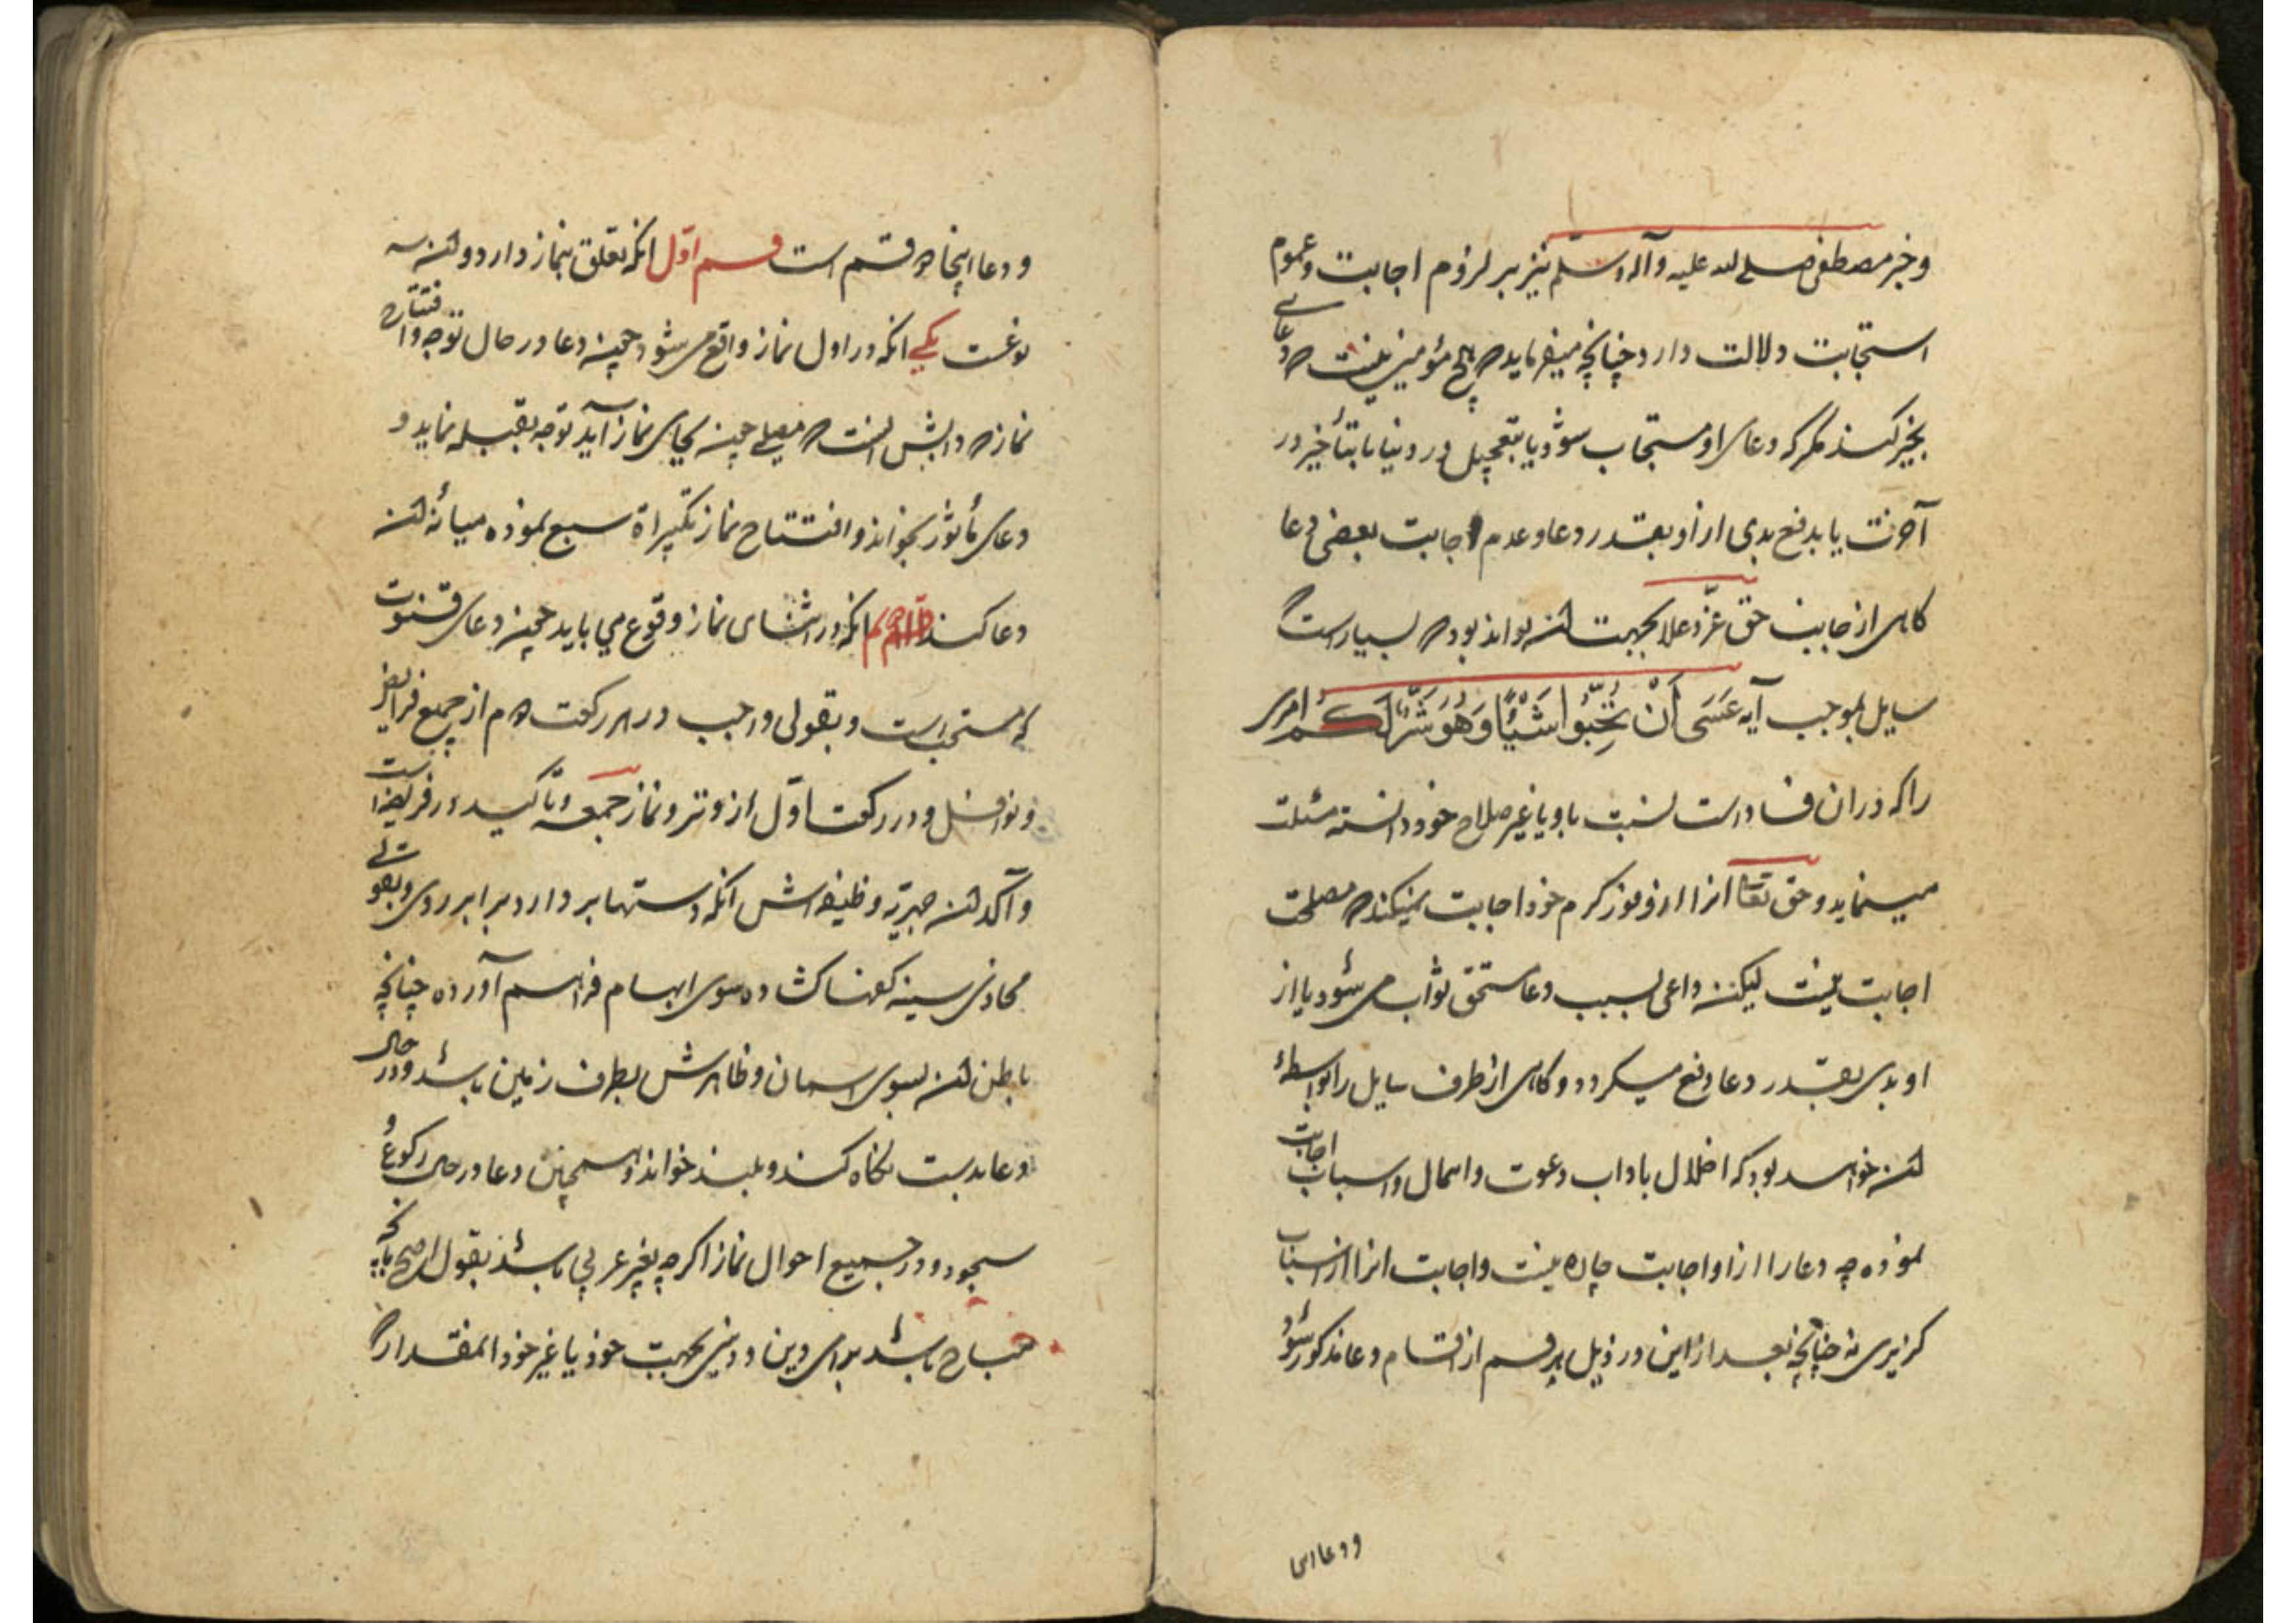 و خبر مصطفی صلی الله علیه و آله و سلم نیز بر لزوم اجابت و عموم
استجابت دلالت دارد چنانچه میفرماید که هیچ مؤمنی نیست که دعایی
بخیر کند مگر که دعای او مستجاب شود یا بتعجیل در دنیا یا بتأخیر در
آخرت یا بدفع بدی از او بقدر دعا و عدم اجابت بعضی دعا
کاهی از جانب حق عزّ و علا بجهت آن تواند بود که بسیارست که
سایل بموجب آیه عَسَی أَنْ تُحِبُّوا شَیْئًا وَهُوَ شَرٌّ لَکُم امری
را که در ان فساد است نسبت باو یا غیر صلاح خود دانسته مسئلت
مینماید و حق تعا انرا از وفور کرم خود اجابت نمیکند که مصلحت
اجابت نیست لیکن داعی بسبب دعا مستحق ثواب می شود یا از
او بدی بقدر دعا دفع میکردد و کاهی از طرف سایل را بواسطهٔ
آن خواهد بود که اخلال باداب دعوت و اهمال و اسباب اجابت
نموده چه دعا را از او اجابت چاره نیست و اجابت انرا از اسباب
کزیری نه چنانچه بعد از این در ذیل هر قسم از اقسام دعا مذکور شود
و دعا اینجا
و دعا اینجا دو قسم است قسم اوّل انکه تعلق بنماز دارد و آن سه
نوعست یکی انکه در اول نماز واقع می شود همچنین دعا در حال توجه و افتتاح
نماز که دابش آنست که مصلی چون بجای نماز آید توجه بقبله نماید و
دعای مأثور بخواند و افتتاح نماز بتکبیراة سبع نموده میانهٔ آن
دعا کند دوم انکه در اثنای نماز وقوع می یابد همچنین دعای قنوت
که مستحب است و بقولی واجب در هر رکعت دوم از جمیع فرایض
و نوافل و در رکعت اوّل از وتر و نماز جمعه و تأکید در فریضه است
و آکد آن جهریّه و ظیفه اش انکه دستها بر دارد برابر روی و بقولی
محاذی سینه کفها کشاده سوی ابهام فراهم آورده چنانچه
باطن آن بسوی اسمان و ظاهرش بطرف زمین باشد و در حال
دعا بدست نکاه کند و بلند خواند و همچنین دعا در حال رکوع و
سجود و در جمیع احوال نماز اکرچه بغیر عربی باشد بقول اصح بآنچه
مباح باشد برای دین و دنیی بجهت خود یا غیر خود انمقدار که